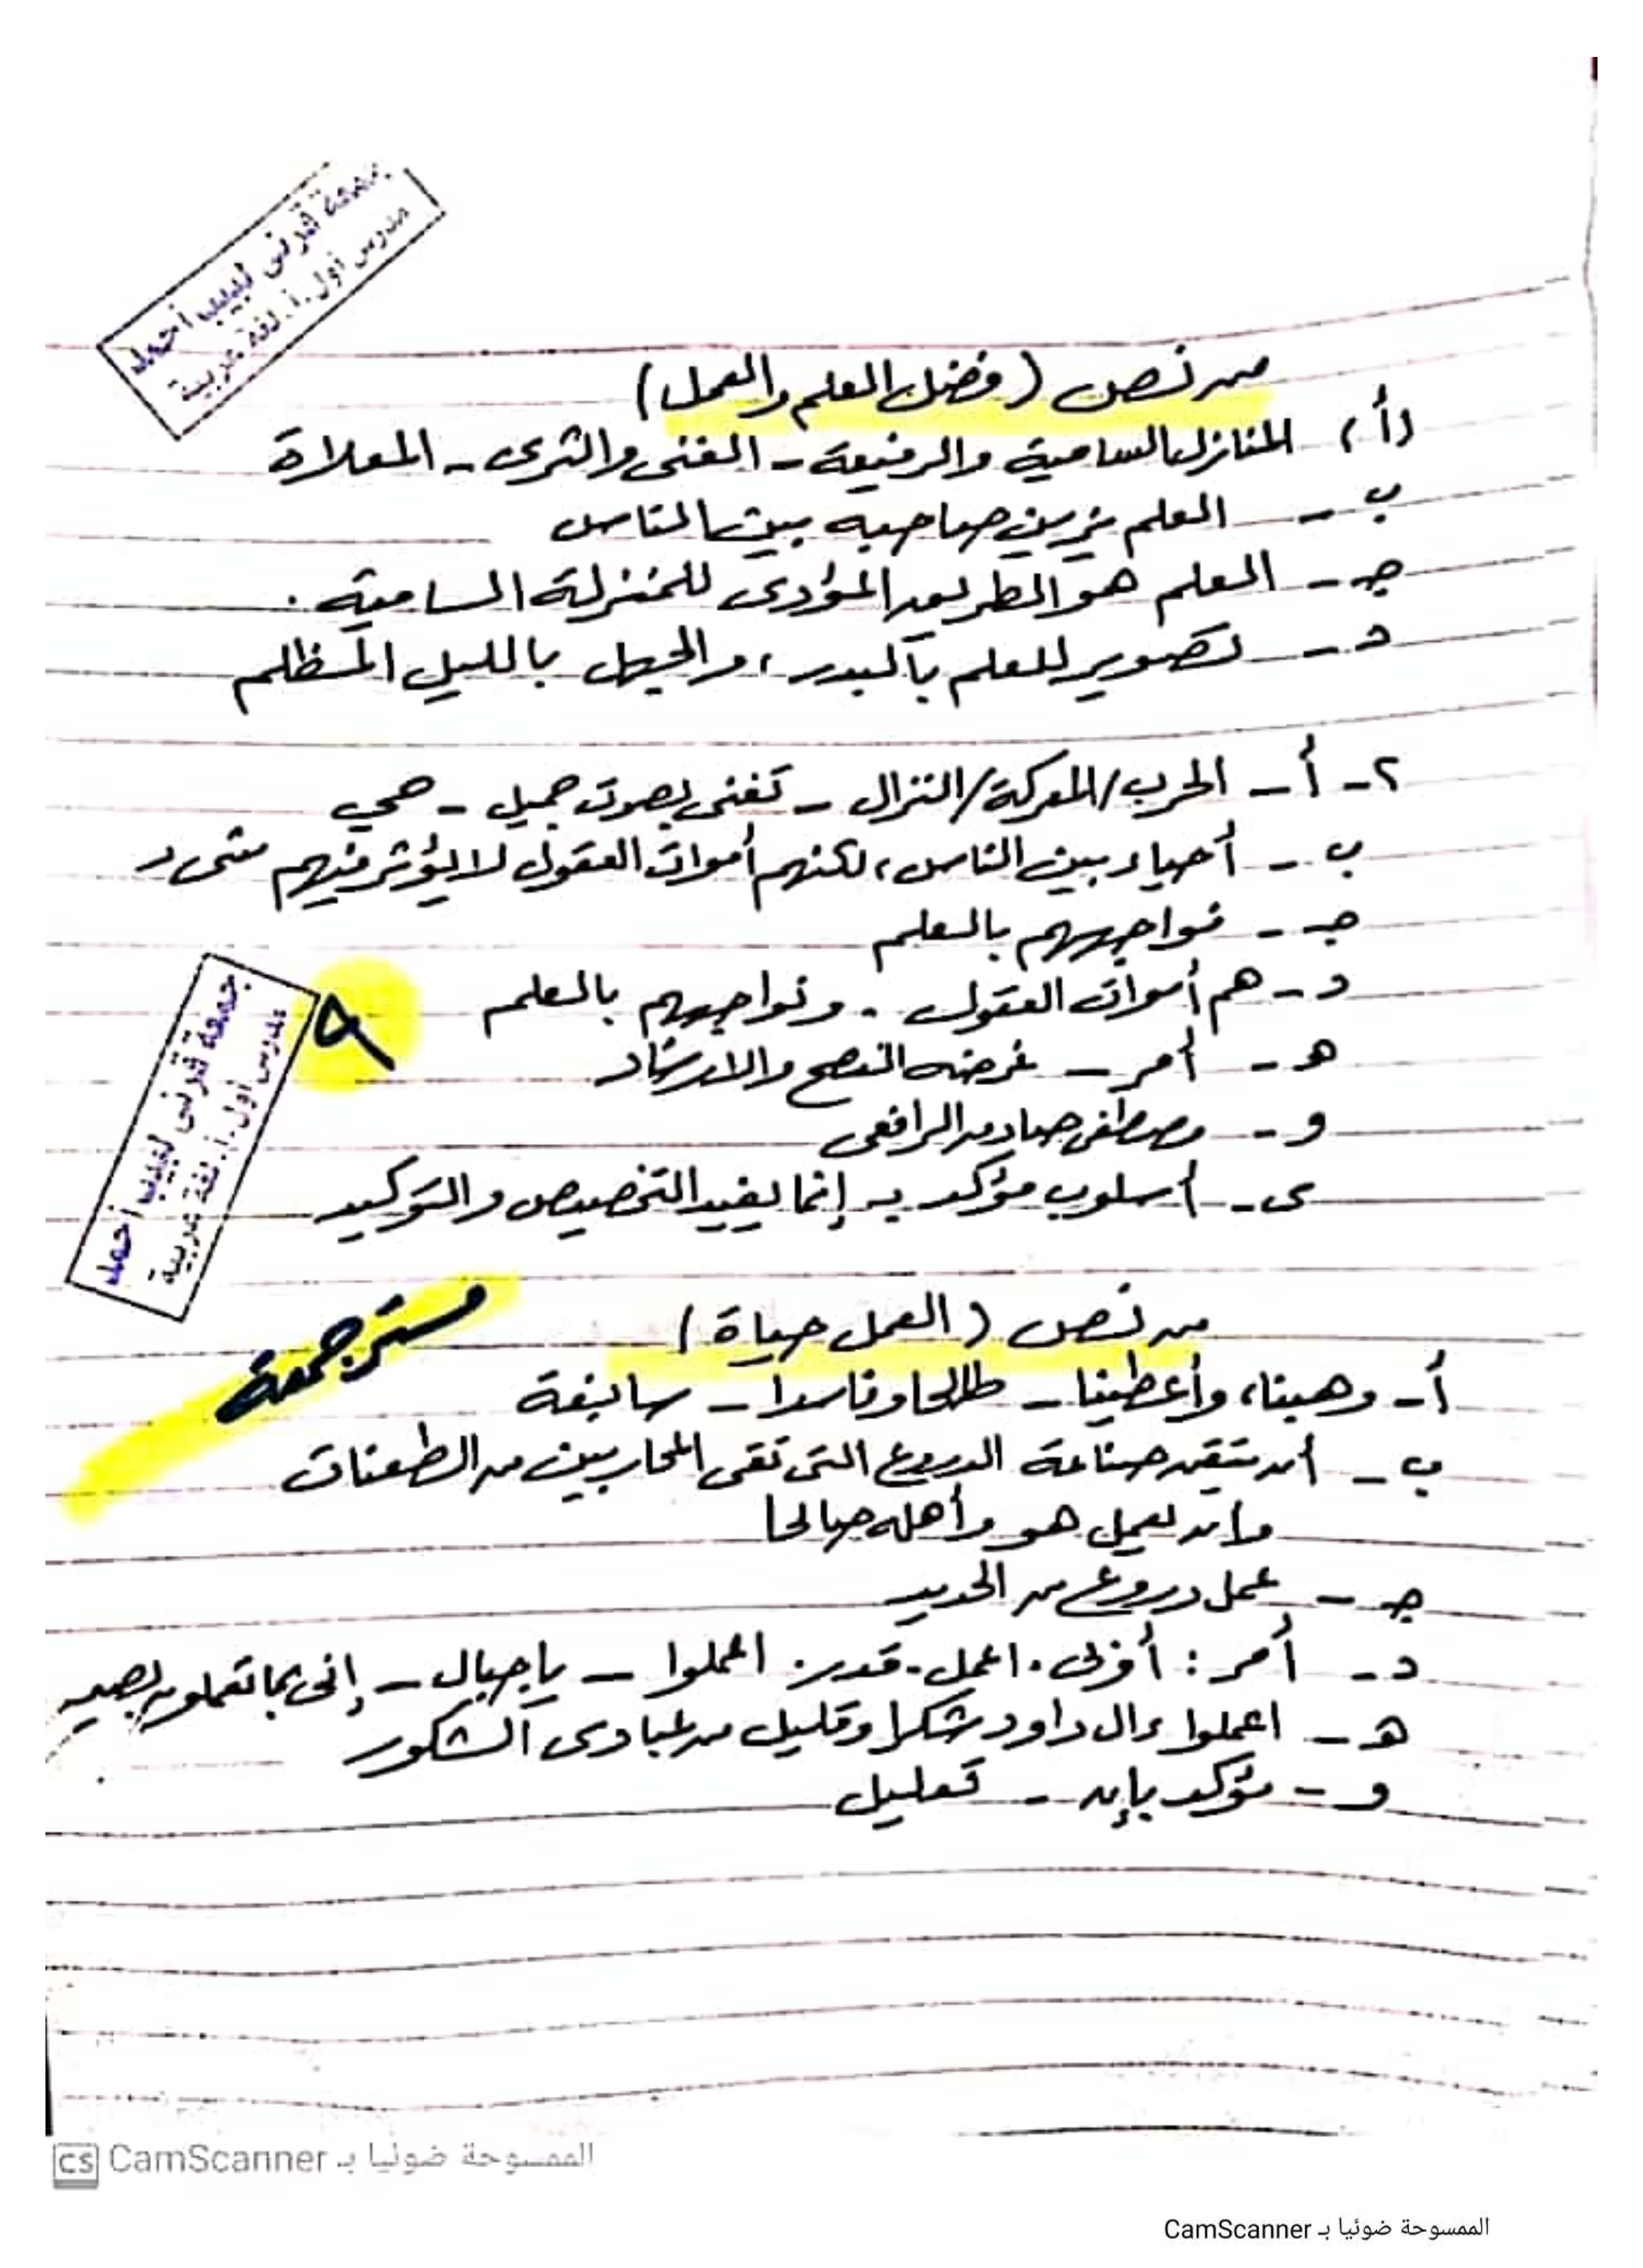 جمعة قرنى لبيب أحمد
مدرس أول.أ. لغة عربية
من نص (فضل العلم والعمل)
(أ) المنازل السامية والرفيعة - الغنى والثرى - المعلاة
ب - العلم يزين صاحبه بين الناس
جـ - العلم هو الطريق المؤدى للمنزلة السامية .
د - تصوير للعلم بالبدر ، والجهل بالليل المظلم
٢- أ - الحرب/المعركة/النزال - تغنى بصوت جميل - حى
ب - أحياء بين الناس ، لكنهم أموات العقول لا يؤثر فيهم شىء
جـ - نواجههم بالعلم
د - هم أموات العقول . ونواجههم بالعلم
٨
هـ - أمر - غرضه النصح والارشاد
و - مصطفى صادق الرافعى
ى - أسلوب مؤكد بـ إنما يفيد التخصيص والتوكيد
جمعة قرنى لبيب أحمد
مدرس أول.أ. لغة عربية
من نص (العمل حياة)
مستر جمعة
أ - وهبنا، وأعطينا - طالحا وفاسدا - سابغة
ب - أن يتقن صناعة الدروع التى تقى المحاربين من الطعنات
وأن يعمل هو وأهله صالحا
جـ - عمل دروع من الحديد
د - أمر : أوبى . اعمل . قدر . اعملوا - يا جبال - إنى بما تعملون بصير
هـ - اعملوا ءال داود شكرا وقليل من عبادى الشكور
و - مؤكد بإن - تعليل
الممسوحة ضوئيا بـ CamScanner
الممسوحة ضوئيا بـ CamScanner